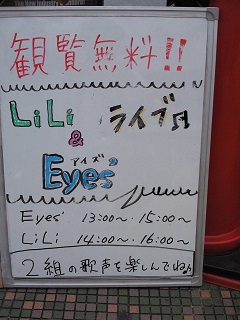 観覧無料!!
LiLi ライブ♬
&
アイズ
Eyes'
Eyes' 13:00〜・15:00〜
LiLi 14:00〜・16:00〜
2組の歌声を楽しんでね♪